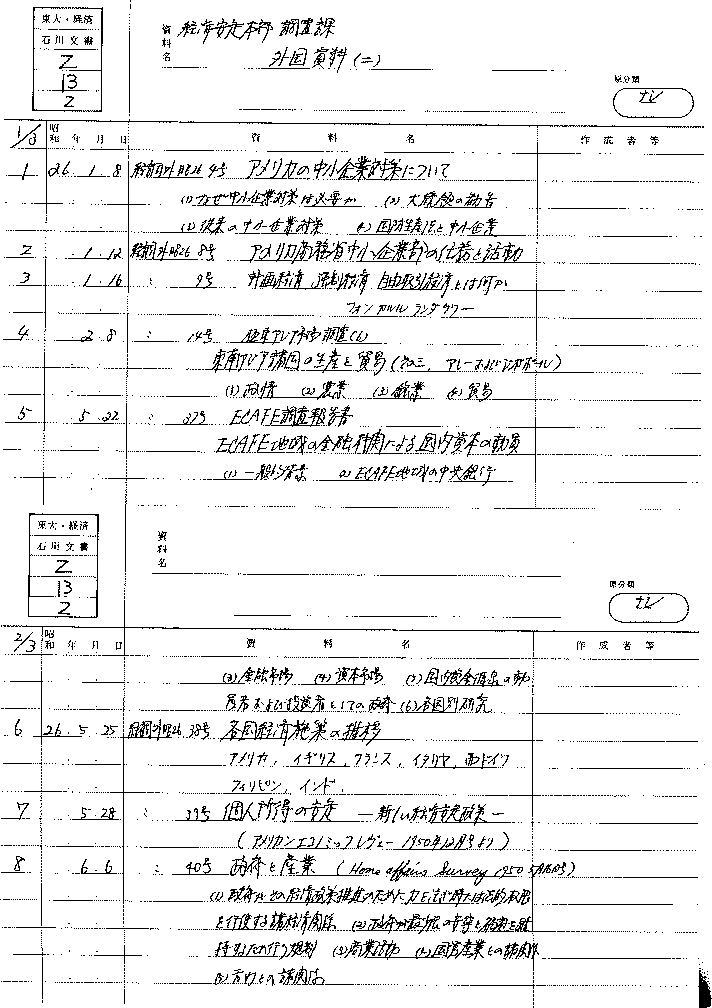 東大・経済
石川文書
Z
13
2
資料名
経済安定本部 調査課
外国資料(二)
原分類
ナレ
1/3 昭和 年 月 日 資料名 作成者等
1 26 1 8 経調外昭26 4号 アメリカの中小企業対策について
(1) なぜ中小企業対策は必要か (2) 大統領の勧告
(3) 従来の中小企業対策 (4) 国防生産法と中小企業
2 1.12 経調外昭26 8号 アメリカ商務省中小企業部の任務と活動
3 1.16 : 9号 計画経済、強制経済、自由取引経済とは何か
フォン カルル ランダウアー
4 2 8 : 14号 極東アジア市場調査(6)
東南アジア諸国の生産と貿易(その三、マレーおよびシンガポール)
(1) 政情 (2) 農業 (3) 鉱業 (4) 貿易
5 5.22 : 37号 ECAFE調査報告書
ECAFE地域の金融機関による国内資本の動員
(1) 一般的背景 (2) ECAFE地域の中央銀行
東大・経済
石川文書
Z
13
2
資料名
原分類
ナレ
2/3 昭和 年 月 日 資料名 作成者等
(3) 金融市場 (4) 資本市場 (5) 国内資金源泉の動
員者および投資者としての政府 (6) 各国別研究
6 26.5.25 経調外昭26 38号 各国経済施策の推移
アメリカ、イギリス、フランス、イタリヤ、西ドイツ
フィリピン、インド、
7 5.28 : 39号 個人所得の安定 —新しい経済安定政策—
(アメリカンエコノミックレヴュー 1950年12月号より)
8 6.6 : 40号 政府と産業 (Home affairs Survey 1950 5月16号)
(1) 政府がその経済政策推進のために力を注ぎ時には法的権限
を行使する諸経済関係 (2) 政府が最少限の 安寧と 維
持するため行う規制 (3) 商業活動 (4) 国営産業との諸関係
(5) との諸関係